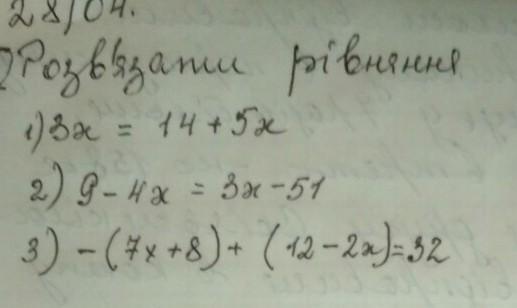 28/04.
Розв'язати рівняння
1) 3x = 14 + 5x
2) 9 - 4x = 3x - 51
3) - (7x + 8) + (12 - 2x) = 32